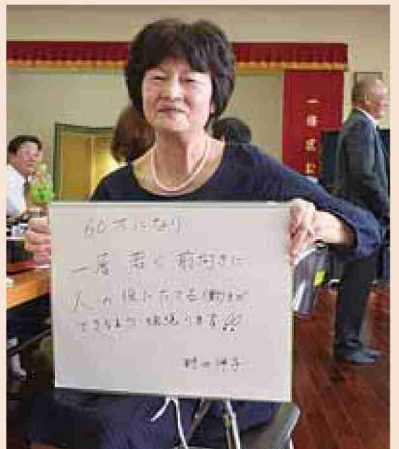 60才になり
一層 若く 前向きに
人の役にたてる働きが
できるよう 頑張ります!!